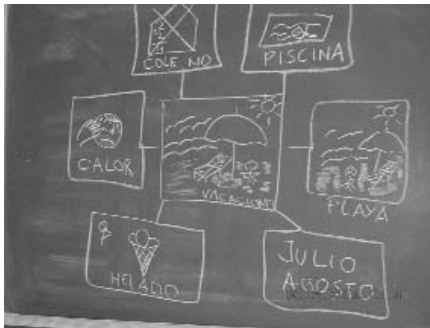 COLE NO
PISCINA
CALOR
VACACIONES
PLAYA
HELADO
JULIO
AGOSTO